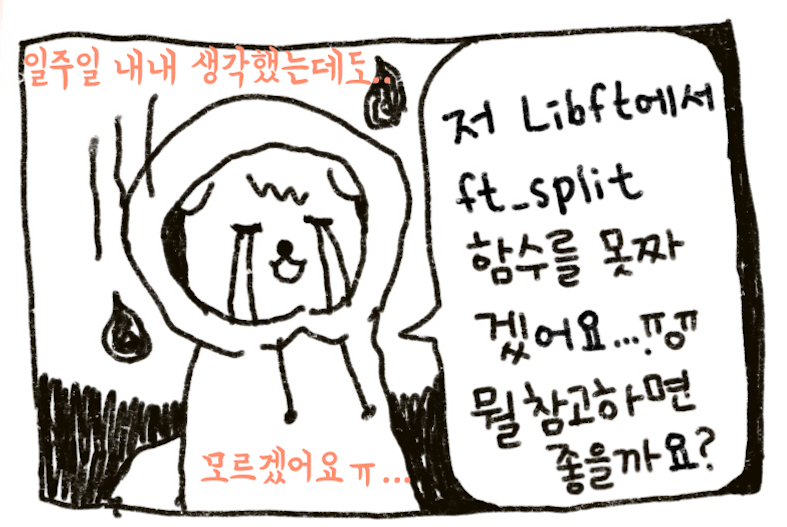 일주일 내내 생각했는데도..
저 Libft에서
ft_split
함수를 못짜
겠어요...ㅠㅇㅠ
뭘 참고하면
좋을까요?
모르겠어요ㅠ...